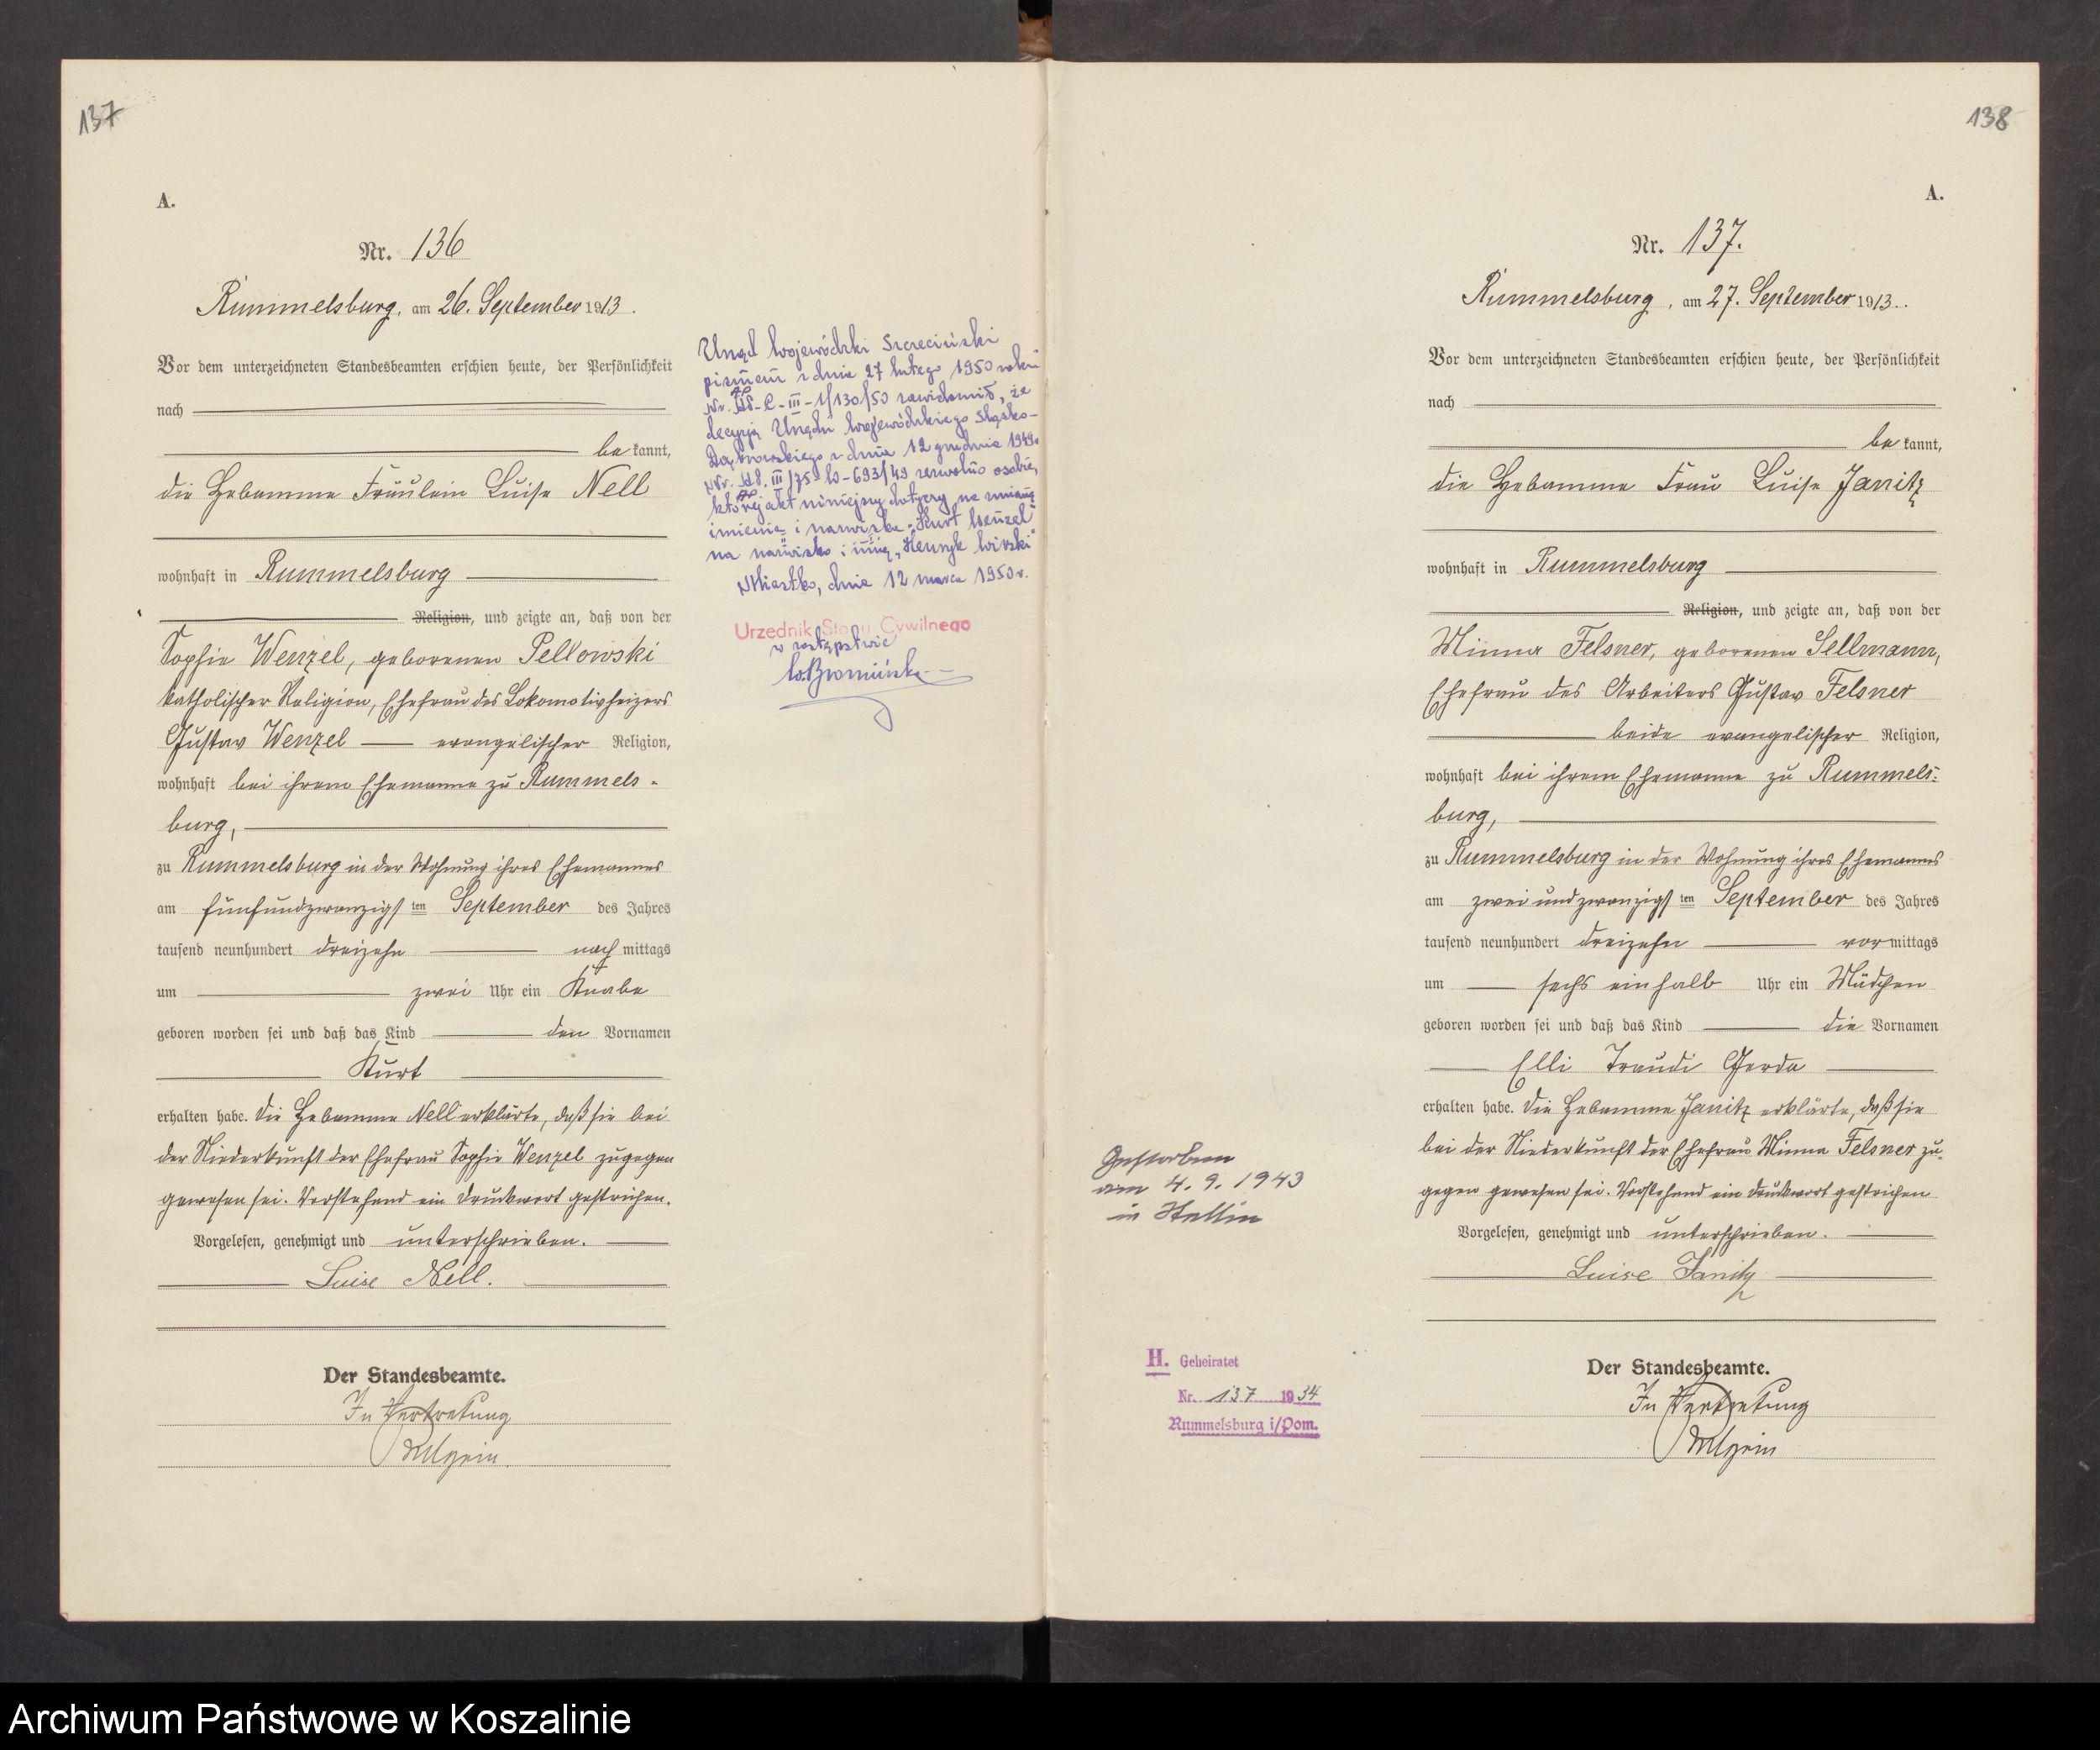 137
A.
Nr. 136
Rummelsburg, am 26. September 1913.
Vor dem unterzeichneten Standesbeamten erschien heute, der Persönlichkeit
nach
be kannt,
die Hebamme Fräulein Luise Nell
wohnhaft in Rummelsburg
Religion, und zeigte an, daß von der
Sophie Wenzel, geborenen Pellowski
katholischer Religion, Ehefrau des Lokomotivheizers
Gustav Wenzel evangelischer Religion,
wohnhaft bei ihrem Ehemanne zu Rummels-
burg,
zu Rummelsburg in der Wohnung ihres Ehemannes
am fünfundzwanzigsten September des Jahres
tausend neunhundert dreizehn nach mittags
um zwei Uhr ein Knabe
geboren worden sei und daß das Kind den Vornamen
Kurt
erhalten habe. Die Hebamme Nell erklärte, daß sie bei
der Niederkunft der Ehefrau Sophie Wenzel zugegen
gewesen sei. Vorstehend ein Druckwort gestrichen.
Vorgelesen, genehmigt und unterschrieben.
Luise Nell.
Der Standesbeamte.
In Vertretung
Urząd Wojewódzki Szczeciński
pismem z dnia 27 lutego 1950 roku
III-1/130/50 zawiadomił, że
decyzją Urzędu Wojewódzkiego Śląsko-
Dąbrowskiego z dnia 12 grudnia 1949
zezwolono osobie,
której akt niniejszy dotyczy na zmianę
imienia i nazwiska "Kurt Wenzel"
na nazwisko i imię "Henryk Wirski"
Miastko, dnia 12 marca 1950 r.
Urzędnik Stanu Cywilnego
w zastępstwie
138
A.
Nr. 137.
Rummelsburg, am 27. September 1913.
Vor dem unterzeichneten Standesbeamten erschien heute, der Persönlichkeit
nach
be kannt,
die Hebamme Frau Luise Janitz
wohnhaft in Rummelsburg
Religion, und zeigte an, daß von der
Minna Felsner, geborenen Sellmann,
Ehefrau des Arbeiters Gustav Felsner
beide evangelischer Religion,
wohnhaft bei ihrem Ehemanne zu Rummels-
burg,
zu Rummelsburg in der Wohnung ihres Ehemannes
am zweiundzwanzigsten September des Jahres
tausend neunhundert dreizehn vormittags
um sechs einhalb Uhr ein Mädchen
geboren worden sei und daß das Kind die Vornamen
Elli Traudi Gerda
erhalten habe. Die Hebamme Janitz erklärte, daß sie
bei der Niederkunft der Ehefrau Minna Felsner zu-
gegen gewesen sei. Vorstehend ein Druckwort gestrichen
Vorgelesen, genehmigt und unterschrieben.
Luise Janitz
Der Standesbeamte.
In Vertretung
Gestorben
am 4. 9. 1943
in Stettin
H. Geheiratet
Nr. 137 1934
Rummelsburg i/Pom.
Archiwum Państwowe w Koszalinie